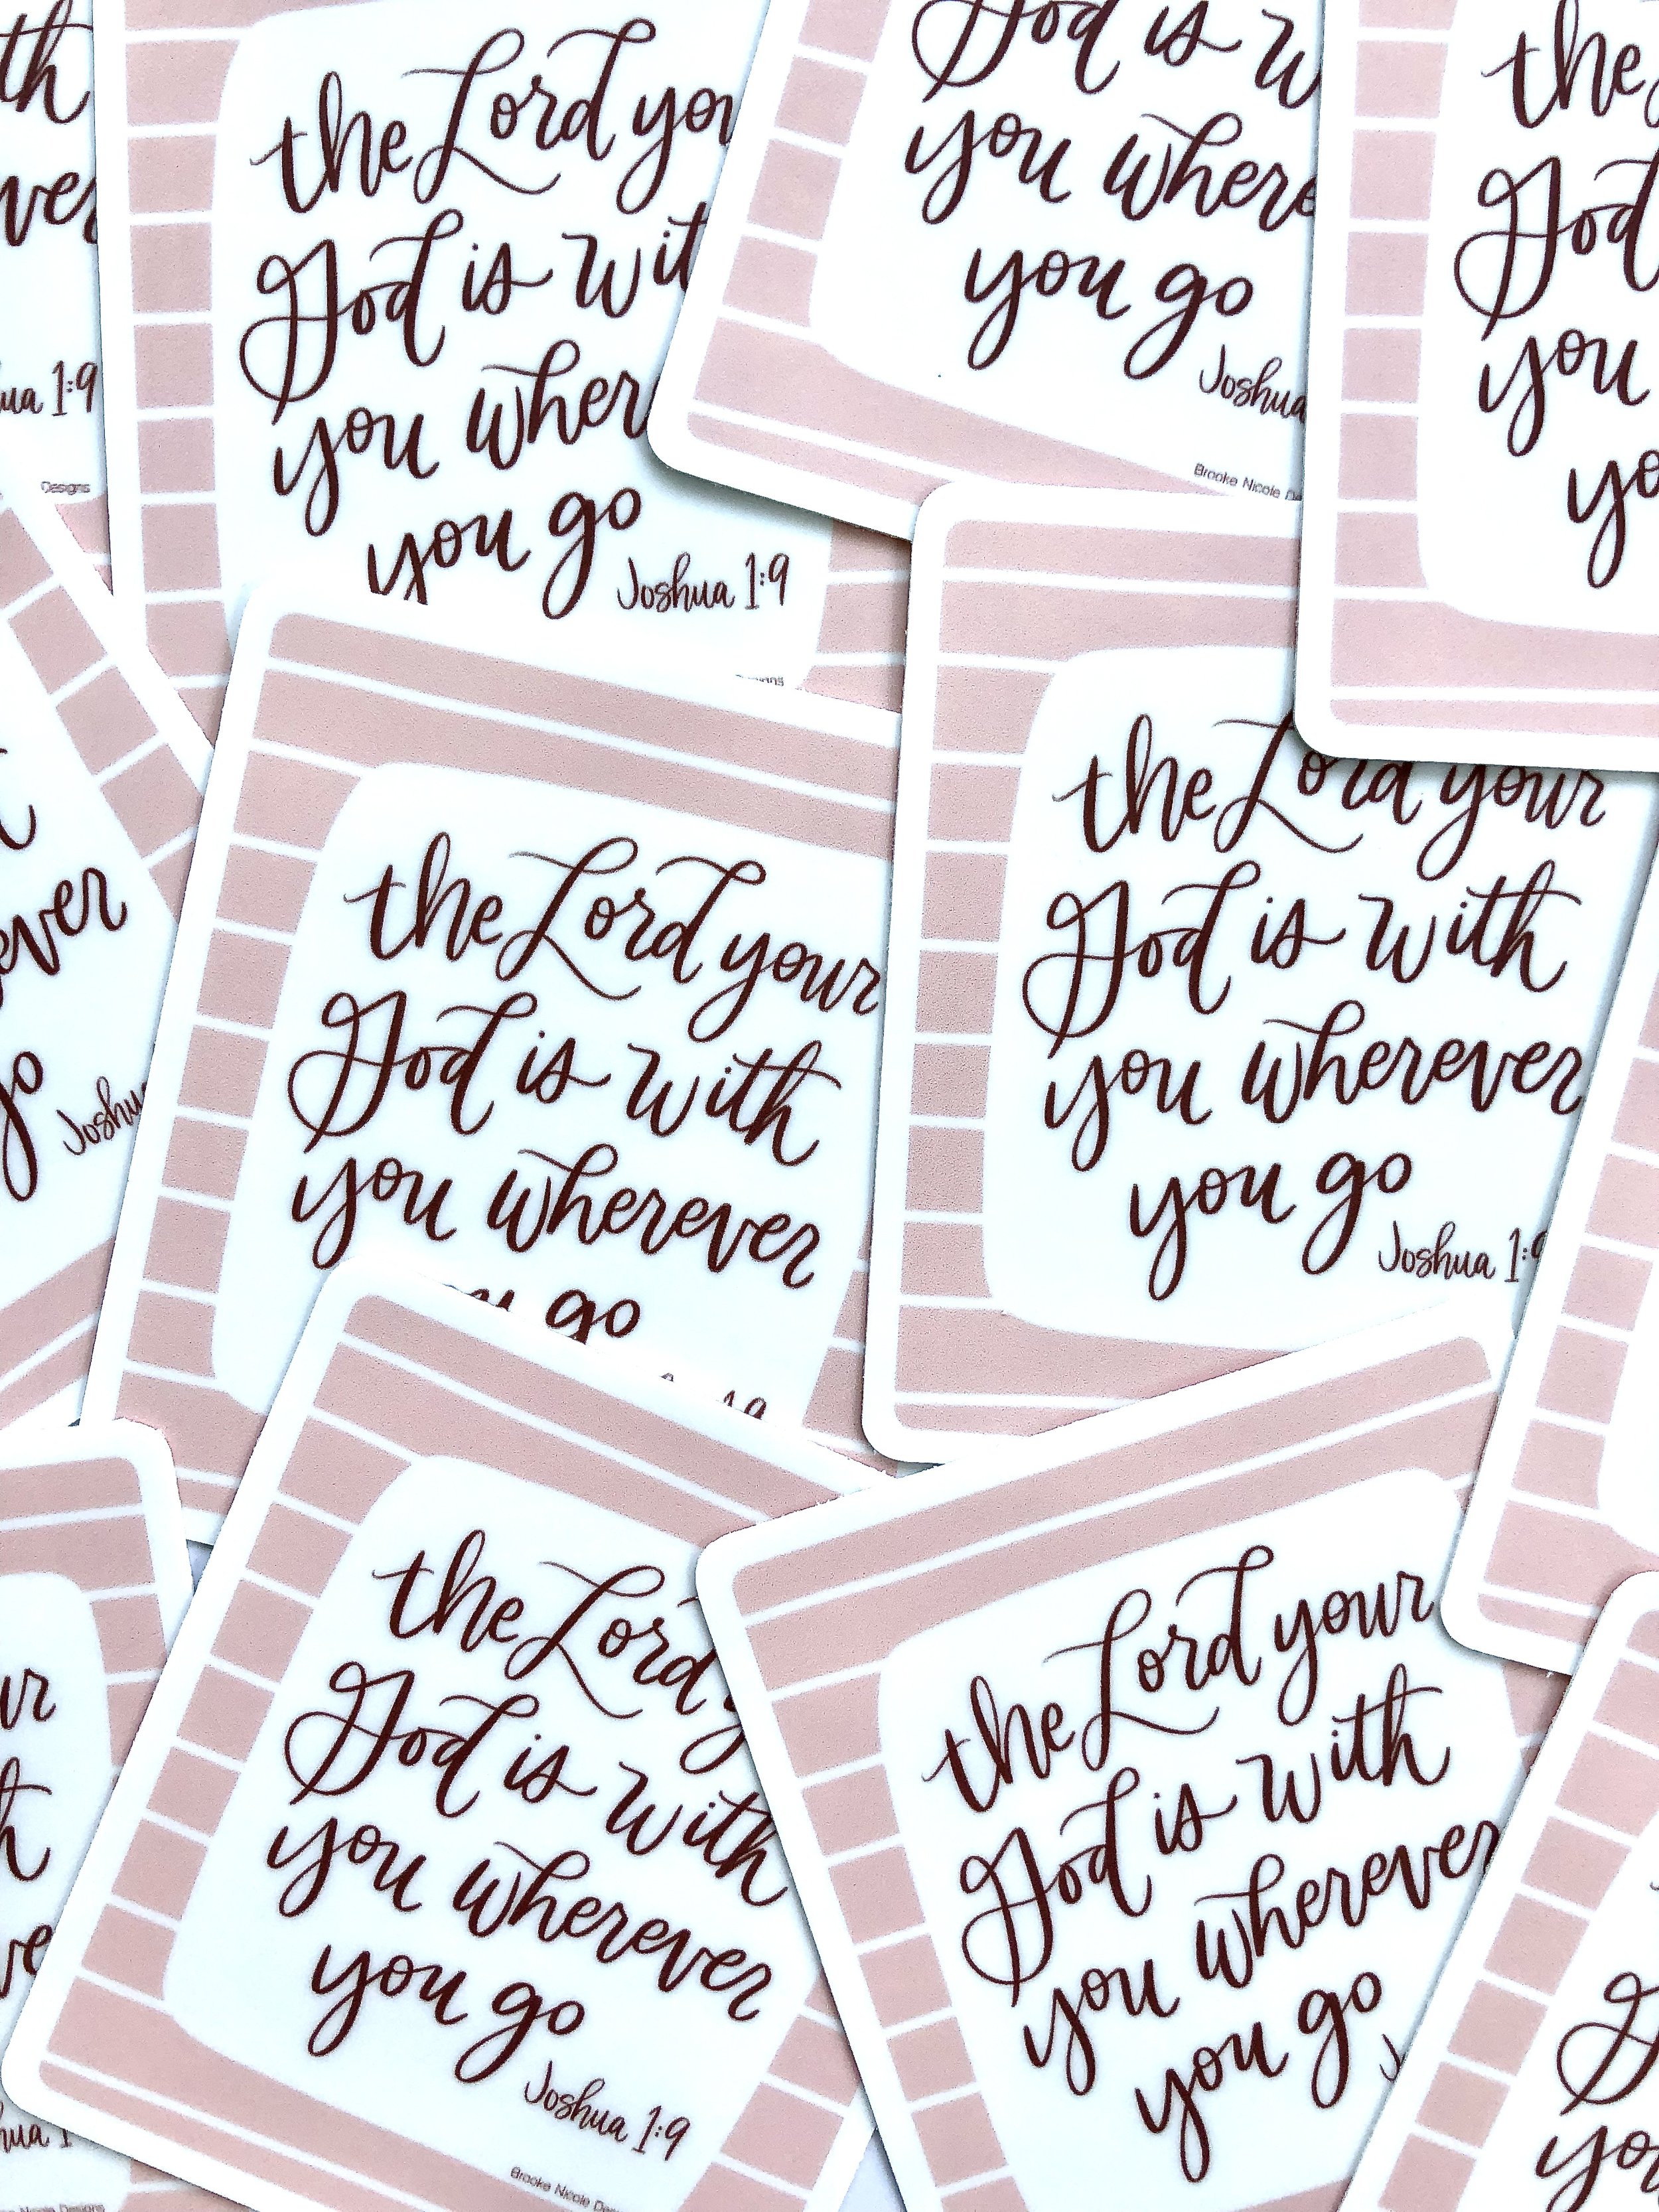 th
ver
ua 1:9
Designs
the Lord you
God is wit
you wher
you go
Joshua 1:9
igns
God is w
you where
you go
Joshua
Brooke Nicole De
the
God
you
yo
t
ever
go
Joshu
the Lord your
God is with
you wherever
go
the Lord your
God is with
you wherever
you go
Joshua 1:9
ur
h
ve
hua 1
Nicole Designs
the Lord y
God is with
you wherever
you go
Joshua 1:9
Brooke Nicole Des
the Lord your
God is with
you wherever
you go
J
God
you